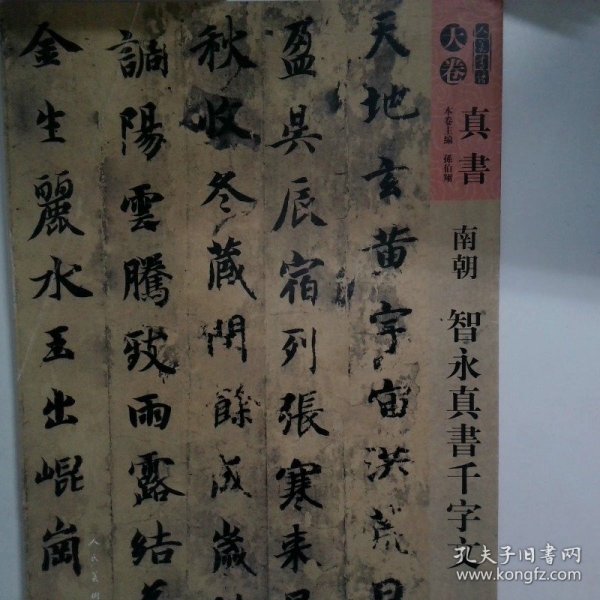 人美書譜
大卷
真書
本卷主編 孫伯翔
南朝
智永真書千字文
天地玄黄宇宙洪荒日
盈昃辰宿列張寒来
秋收冬藏閏餘成歲
調陽雲騰致雨露結
金生麗水玉出崐崗
人民美術
孔夫子旧书网
www.kongfz.com